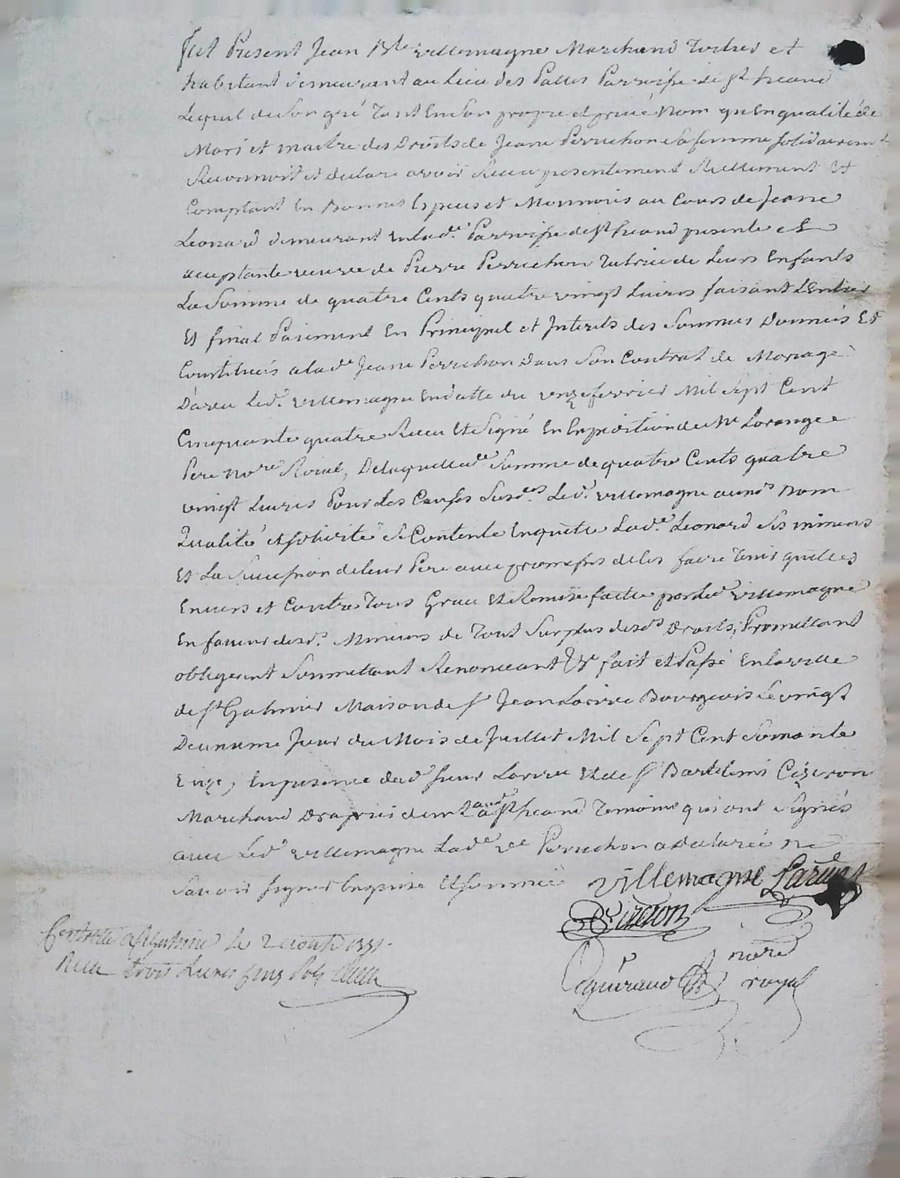 fut Présent Jean Bte villemagne Marchand et
habitant demeurant au Lieu des Palles Parroisse de st heand
Lequel de son gré Tant En son propre et privé Nom qu'En qualité de
Mari et maitre des Droits de Jeane Perrichon sa femme solidairemt
Reconnoit et declare avoir Reçu presentement Rellement Et
Comptant En Bonnes Especes et Monnois au Cours de Jeane
Leonard demeurant En lade Parroisse de st heand presente et
acceptante veuve de Pierre Perrichon Tutrice de Leurs Enfants
La Somme de quatre Cents quatre vingt Livres faisant L'Entier
Et final Paiement En Principal et Interets des Sommes Données Et
Constituées a lade Jeane Perrichon Dans Son Contrat de Mariage
Davec Ledt villemagne En datte du onze fevrier Mil Sept Cent
Cinquante quatre Recu Et Signé En Expedition de Me Lorange
Pere Nore Roial, De laquelle de Somme de quatre Cents quatre
vingt Livres Pour Les Causes Susdes Ledt villemagne aux nom
Qualité et solidité Se Contente Enquitte Lade Leonard Ses mineurs
Et La Succession de leur Pere avec promesse de les faire Tenir quittes
Envers et Contre Tous Grace Et Remise faitte par led villemagne
En faveur desdt Mineurs de Tout Surplus desdts Droits, Promettant
obligeant Soumettant Renonceant &r fait et Passé En la ville
de St Galmier Maison de Sr Jean Larive Bourgeois Le vingt
Deuxieme Jour du Mois de Juillet Mil Sept Cent Soixante
Onze, En presence dudt sieur Larive Et de Sr Bartelemi Cizeron
Marchand Drapier demt aud St heand Temoins qui ont Signés
avec Ledt villemagne Lade ve Perrichon a declaré ne
Savoir signer Enquise Et sommée villemagne Larive
Cizeron
nore
royal
Controllé a St Galmier le 2 aoust 1771
Recu trois Livres cinq Sols